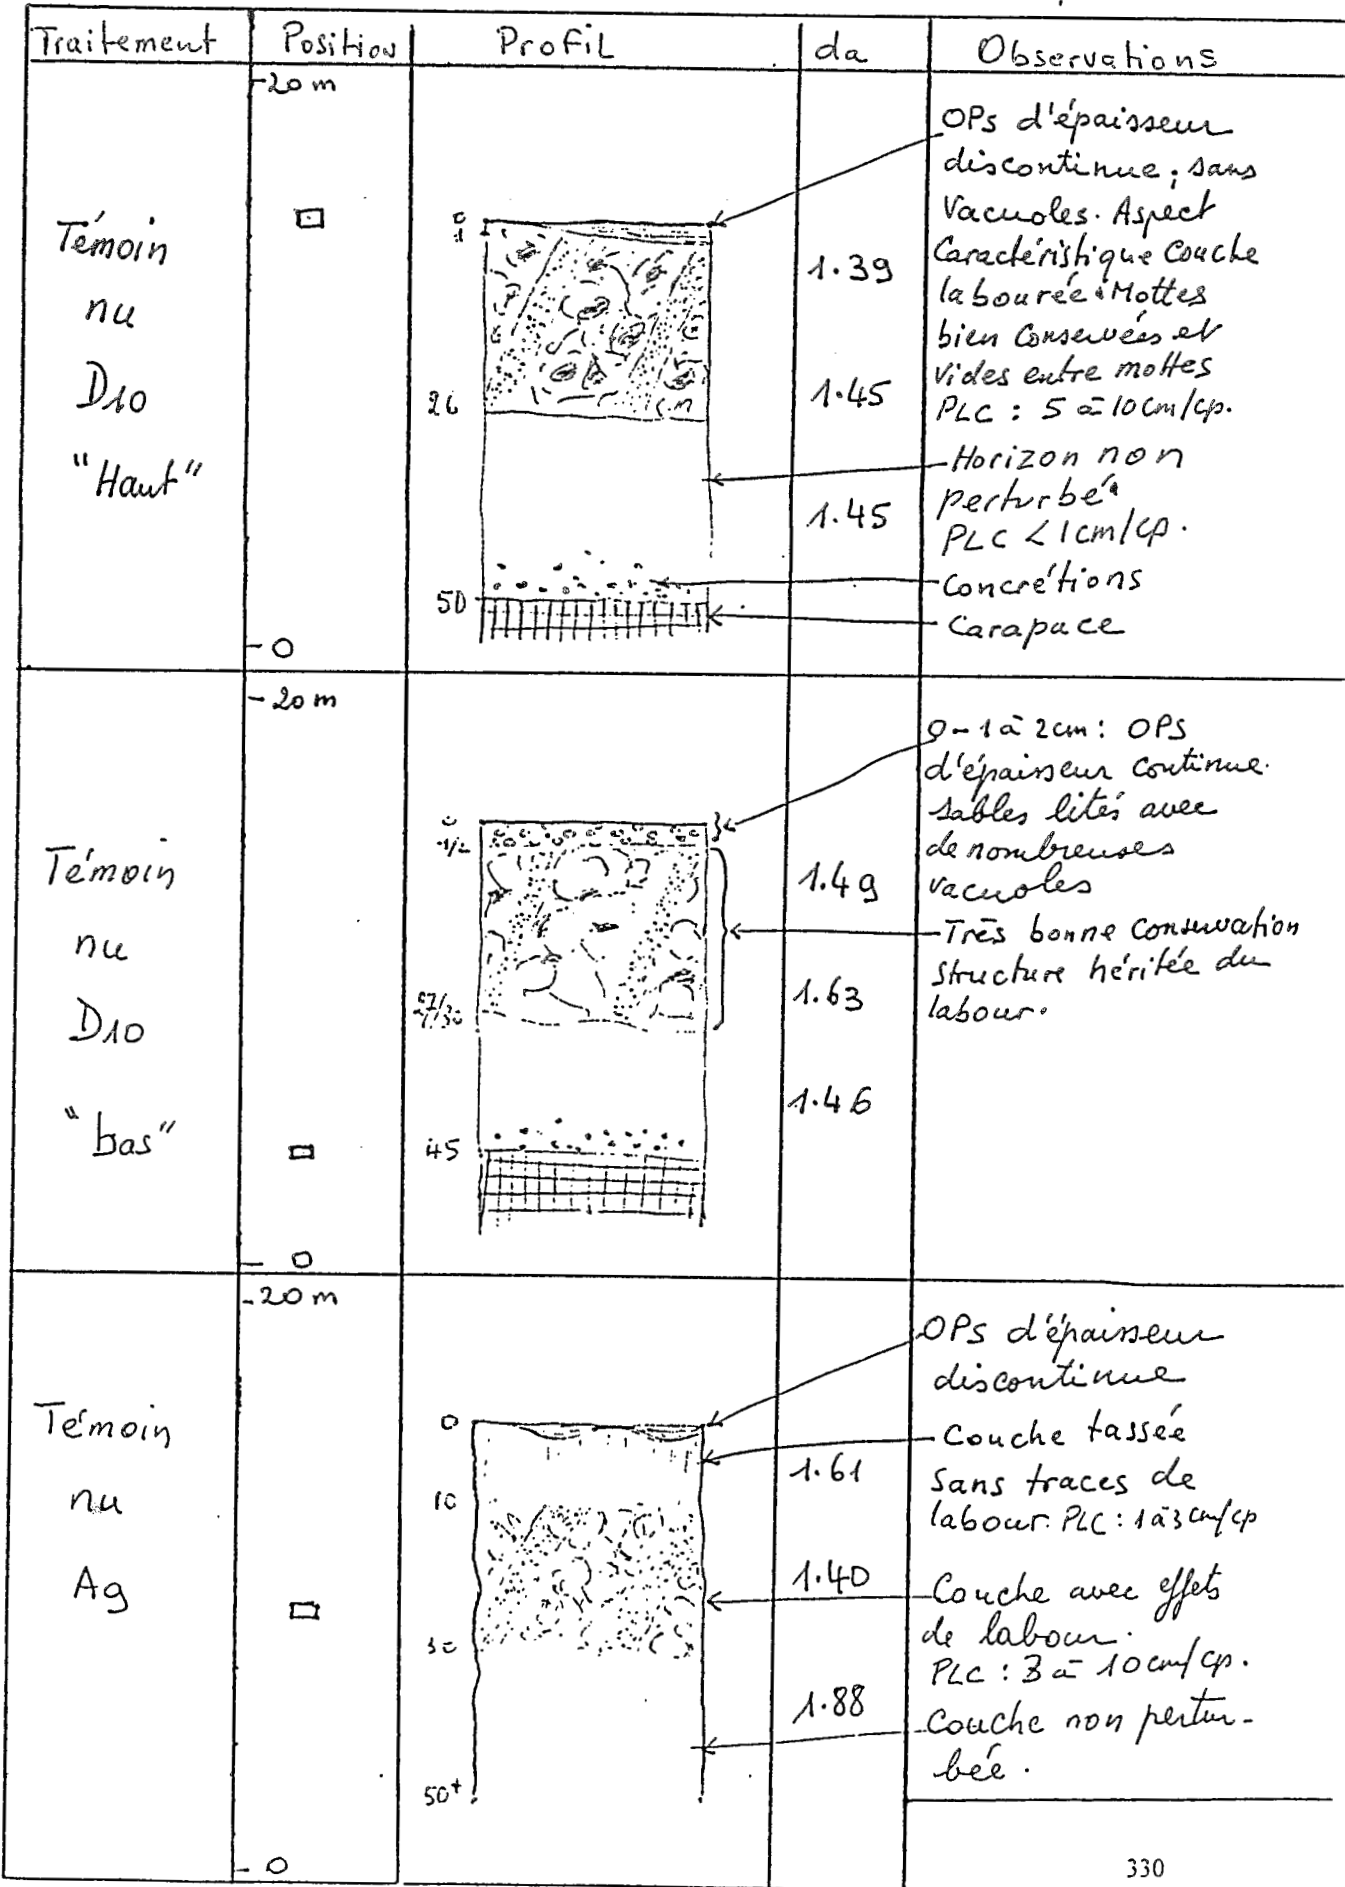 Traitement Position Profil da Observations
20 m
Témoin
nu
D10
"Haut"
0
0
1
26
50
1.39
1.45
1.45
OPs d'épaisseur
discontinue; sans
Vacuoles. Aspect
Caractéristique Couche
labourée: Mottes
bien Conservées et
vides entre mottes
PLC : 5 à 10 cm/cp.
Horizon non
perturbé.
PLC < 1 cm/cp.
Concrétions
Carapace
20 m
Témoin
nu
D10
"bas"
0
0
1/2
27/30
45
1.49
1.63
1.46
0-1 à 2 cm : OPS
d'épaisseur continue.
sables lités avec
de nombreuses
vacuoles
Très bonne Conservation
Structure héritée du
labour.
20 m
Témoin
nu
Ag
0
0
10
30
50+
1.61
1.40
1.88
OPs d'épaisseur
discontinue
Couche tassée
Sans traces de
labour. PLC : 1 à 3 cm/cp
Couche avec effets
de labour.
PLC : 3 à 10 cm/cp.
Couche non pertur-
bée.
330